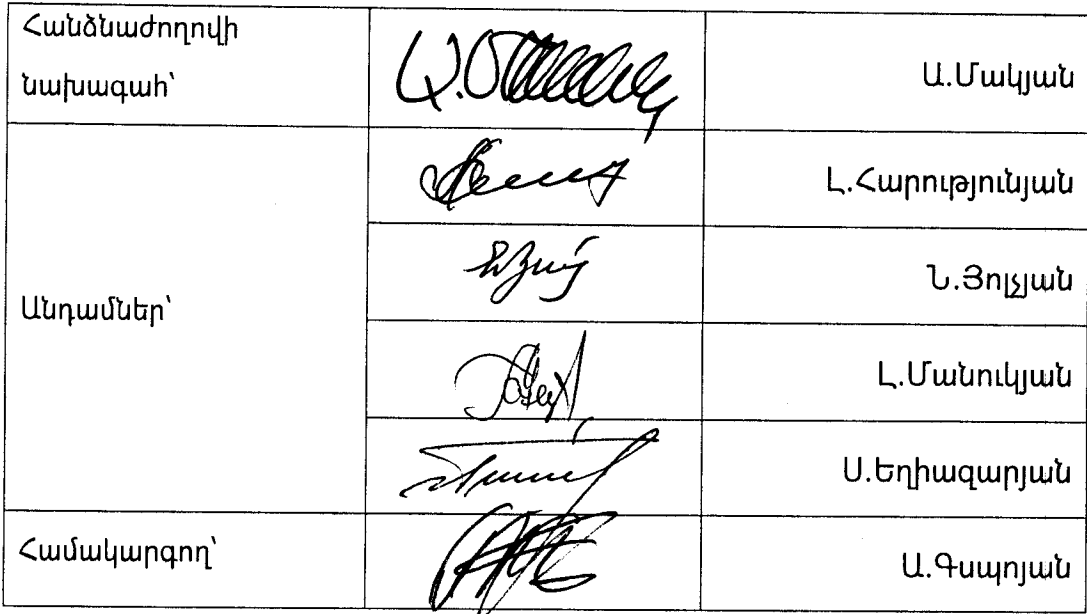 Հանձնաժողովի
նախագահ՝
Ա.Մակյան
Լ.Հարությունյան
Ն.Յոլչյան
Անդամներ՝
Լ.Մանուկյան
Ս.Եղիազարյան
Համակարգող՝
Ա.Գսպոյան